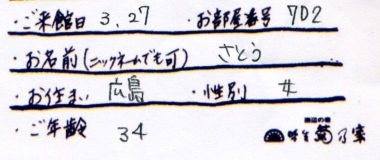 ・ご来館日 3.27 ・お部屋番号 702
・お名前(ニックネームでも可) さとう
・お住まい 広島 ・性別 女
・ご年齢 34
渚辺の宿
味な宿 菊乃家